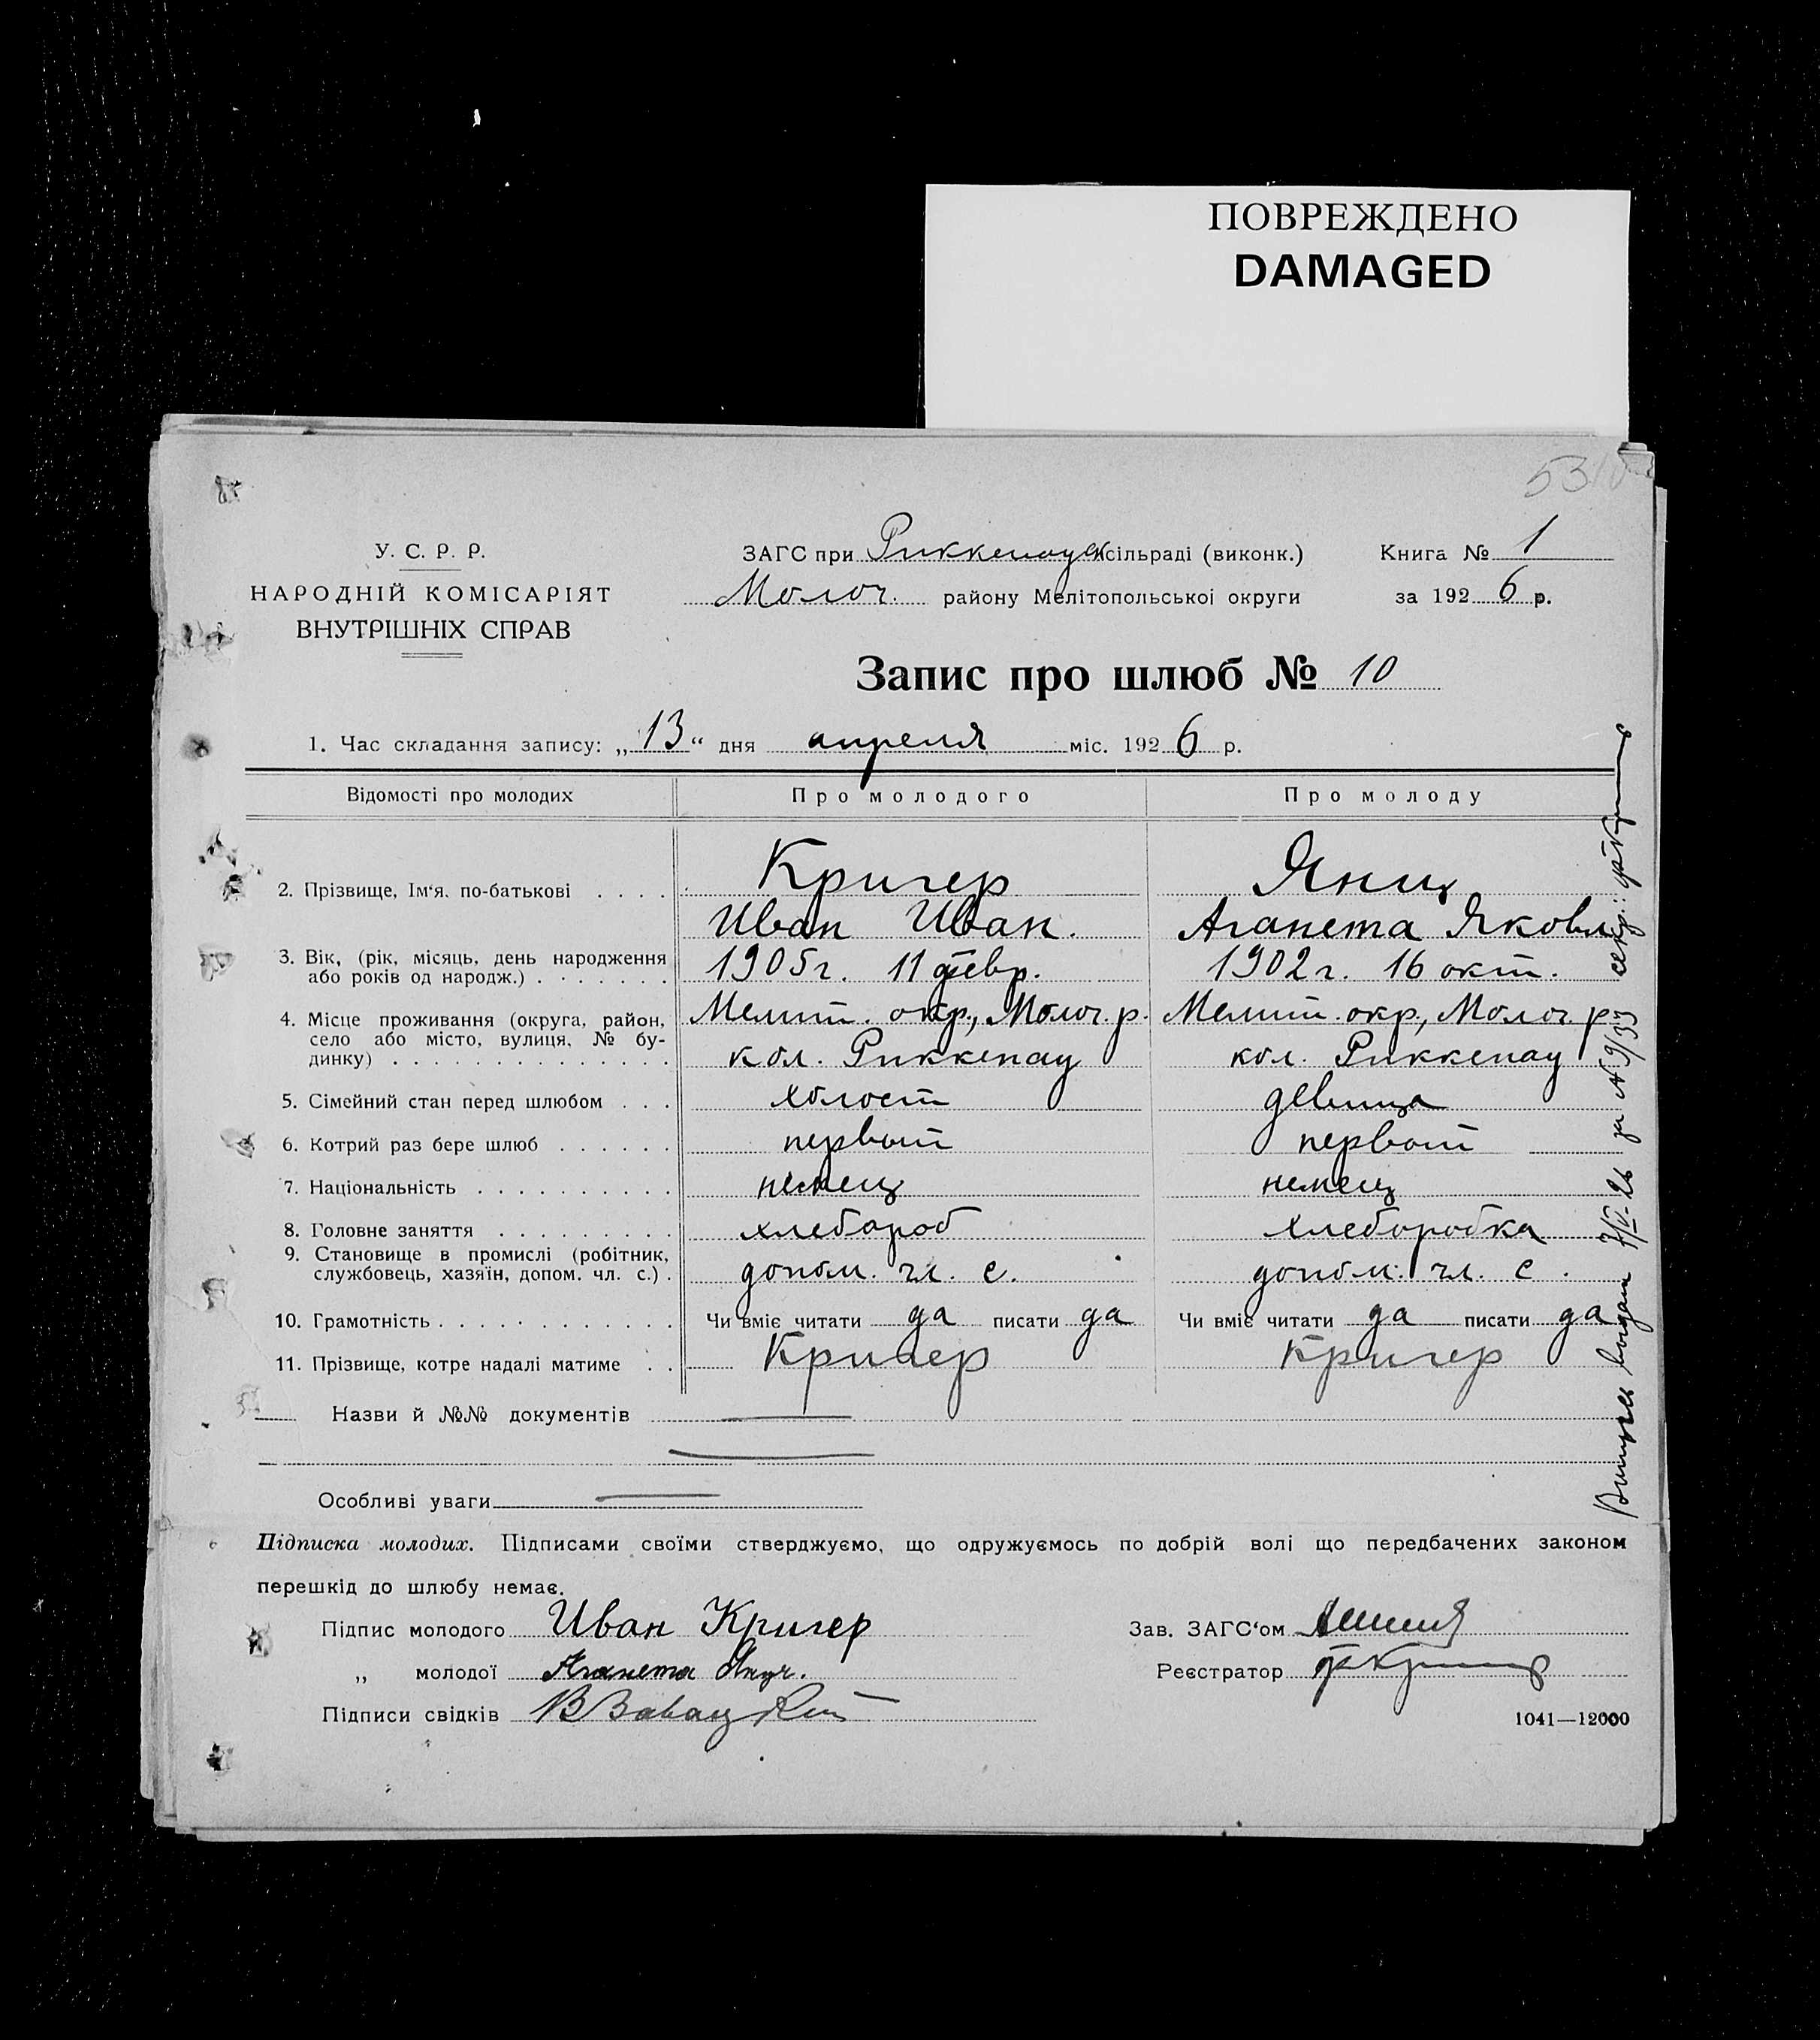 ПОВРЕЖДЕНО
DAMAGED
53
У. С. Р. Р.
НАРОДНІЙ КОМІСАРІЯТ
ВНУТРІШНІХ СПРАВ
ЗАГС при Риккенауск сільраді (виконк.)
Молоч. району Мелітопольської округи
Книга № 1
за 1926 р.
Запис про шлюб № 10
1. Час складання запису: „13“ дня апреля міс. 1926 р.
Відомості про молодих Про молодого Про молоду
2. Прізвище, Ім‘я, по-батькові . . . . Кригер Янц
Иван Иван. Аганета Яковл
3. Вік, (рік, місяць, день народження 1905 г. 11 февр. 1902 г. 16 окт.
або років од народж.) . . . . . . .
4. Місце проживання (округа, район, Мелит. окр., Молоч. р. Мелит. окр., Молоч. р
село або місто, вулиця, № бу-
динку) . . . . . . . . . . . . . . кол. Риккенау кол. Риккенау
5. Сімейний стан перед шлюбом . . . холост девица
6. Котрий раз бере шлюб . . . . . . первый первый
7. Національність . . . . . . . . . . немец немец
8. Головне заняття . . . . . . . . . хлебороб хлеборобка
9. Становище в промислі (робітник,
службовець, хазяїн, допом. чл. с.) . допом. чл. с. допом. чл. с.
10. Грамотність . . . . . . . . . . . . Чи вміє читати да писати да Чи вміє читати да писати да
11. Прізвище, котре надалі матиме . . Кригер Кригер
Назви й №№ документів
Особливі уваги
Підписка молодих. Підписами своїми стверджуємо, що одружуємось по добрій волі що передбачених законом
перешкід до шлюбу немає.
Підпис молодого Иван Кригер
„ молодої Аганета Янц.
Підписи свідків В Завацкий
Зав. ЗАГС‘ом
Реєстратор
1041—12000
выдан 7/V-26 за № 9/33 секр.: